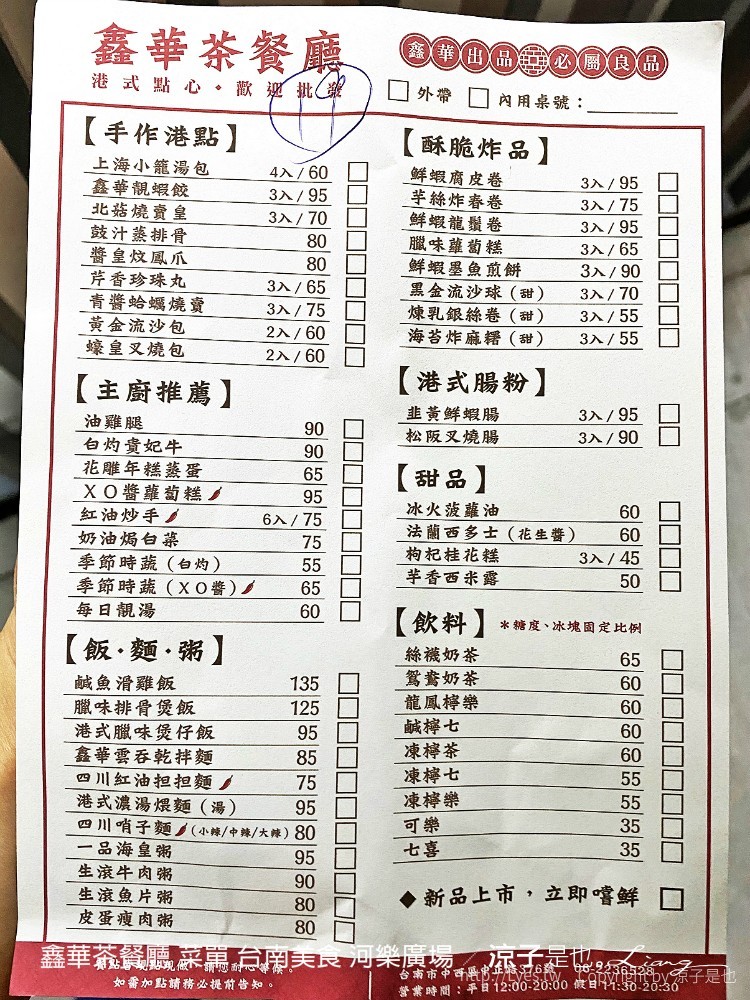 鑫華茶餐廳
港式點心・歡迎批發
19
鑫華出品 必屬良品
外帶 內用桌號：
【手作港點】
上海小籠湯包 4入/60
鑫華靚蝦餃 3入/95
北菇燒賣皇 3入/70
豉汁蒸排骨 80
醬皇炆鳳爪 80
芹香珍珠丸 3入/65
青醬蛤蠣燒賣 3入/75
黃金流沙包 2入/60
蠔皇叉燒包 2入/60
【主廚推薦】
油雞腿 90
白灼貴妃牛 90
花雕年糕蒸蛋 65
XO醬蘿蔔糕 95
紅油炒手 6入/75
奶油焗白菜 75
季節時蔬（白灼） 55
季節時蔬（XO醬） 65
每日靚湯 60
【飯・麵・粥】
鹹魚滑雞飯 135
臘味排骨煲飯 125
港式臘味煲仔飯 95
鑫華雲吞乾拌麵 85
四川紅油担担麵 75
港式濃湯煨麵（湯） 95
四川哨子麵（小辣/中辣/大辣） 80
一品海皇粥 95
生滾牛肉粥 90
生滾魚片粥 80
皮蛋瘦肉粥 80
【酥脆炸品】
鮮蝦腐皮卷 3入/95
芋絲炸春卷 3入/75
鮮蝦龍鬚卷 3入/95
臘味蘿蔔糕 3入/65
鮮蝦墨魚煎餅 3入/90
黑金流沙球（甜） 3入/70
煉乳銀絲卷（甜） 3入/55
海苔炸麻糬（甜） 3入/55
【港式腸粉】
韭黃鮮蝦腸 3入/95
松阪叉燒腸 3入/90
【甜品】
冰火菠蘿油 60
法蘭西多士（花生醬） 60
枸杞桂花糕 3入/45
芋香西米露 50
【飲料】 *糖度、冰塊固定比例
絲襪奶茶 65
鴛鴦奶茶 60
龍鳳檸樂 60
鹹檸七 60
凍檸茶 60
凍檸七 55
凍檸樂 55
可樂 35
七喜 35
◆新品上市，立即嚐鮮
如需加點請務必提前告知。
台南市中西區中正路376號 06-2236528
營業時間：平日12:00-20:00 假日11:30-20:30
鑫華茶餐廳 菜單 台南美食 河樂廣場 / 涼子是也
http://Lyes.tw Copyright by 涼子是也